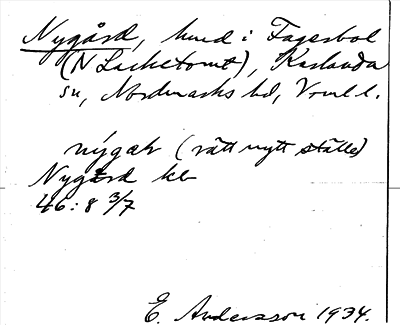 Nygård, hmd i Fagerbol
(N Lücketomt), Karlanda
sn, Nordmarks hd, Vrml l.
nýgaṙ (rätt nytt ställe)
Nygård kb
46:8 3/7
E. Andersson 1934.